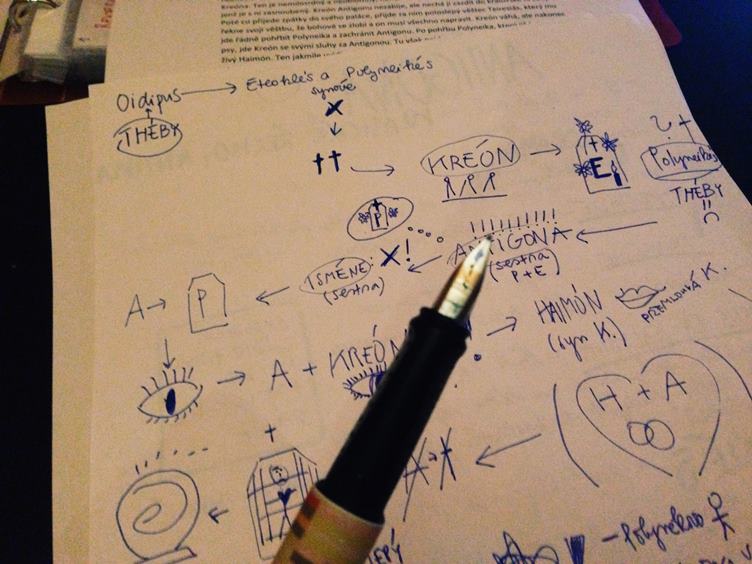 jsou psi zasnoubení. Kreón Antigonu nezabije, ale nechá ji zazdít do
Poté co přijede zpátky do svého paláce, přijde za ním poloslepý věštec Teiresiás, který mu
řekne svoji věštbu, že bohové se zlobí a on musí všechno napravit. Kreón váhá, ale nakonec
jde řádně pohřbít Polyneika a zachránit Antigonu. Po pohřbu Polyneika,
psy, jde Kreón se svými sluhy za Antigonou. Tu však
živý Haimón. Ten jakmile
Oidipus Eteoklés a Polyneikés
synové
THÉBY
KREÓN
E
Polyneikés
THÉBY
P
ANTIGONA
(sestra
P+E)
ISMÉNÉ: X!
(sestra)
A → P
HAIMÓN
(syn K.)
PŘEMLOUVÁ K.
A + KREÓN
H + A
- Polyneikovo